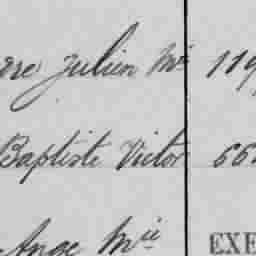 ere Julien Mie 119
Baptiste Victor 66
Ange Mie EXE